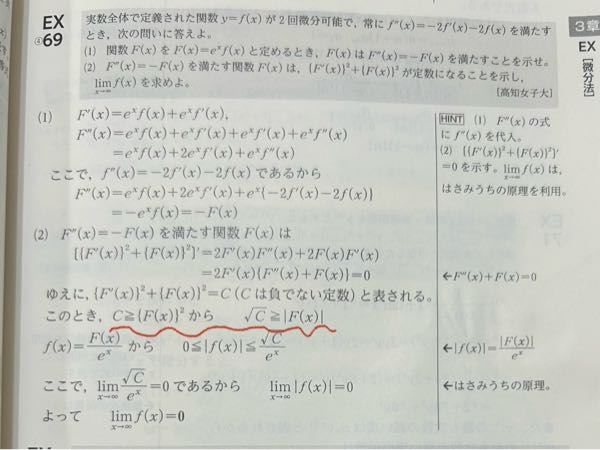 EX
④69
実数全体で定義された関数 y=f(x) が2回微分可能で，常に f″(x)=−2f′(x)−2f(x) を満たす
とき，次の問いに答えよ。
(1) 関数 F(x) を F(x)=eˣf(x) と定めるとき，F(x) は F″(x)=−F(x) を満たすことを示せ。
(2) F″(x)=−F(x) を満たす関数 F(x) は，{F′(x)}²+{F(x)}² が定数になることを示し，
lim f(x) を求めよ。
x→∞
[高知女子大]
3章
EX
[微分法]
(1) F′(x)=eˣf(x)+eˣf′(x),
F″(x)=eˣf(x)+eˣf′(x)+eˣf′(x)+eˣf″(x)
=eˣf(x)+2eˣf′(x)+eˣf″(x)
ここで，f″(x)=−2f′(x)−2f(x) であるから
F″(x)=eˣf(x)+2eˣf′(x)+eˣ{−2f′(x)−2f(x)}
=−eˣf(x)=−F(x)
(2) F″(x)=−F(x) を満たす関数 F(x) は
[{F′(x)}²+{F(x)}²]′=2F′(x)F″(x)+2F(x)F′(x)
=2F′(x){F″(x)+F(x)}=0
ゆえに，{F′(x)}²+{F(x)}²=C (C は負でない定数) と表される。
このとき，C≧{F(x)}² から √C≧|F(x)|
f(x)=F(x)/eˣ から 0≦|f(x)|≦√C/eˣ
ここで，lim[x→∞] √C/eˣ=0 であるから lim[x→∞] |f(x)|=0
よって lim[x→∞] f(x)=0
HINT (1) F″(x) の式
に f″(x) を代入。
(2) [{F′(x)}²+{F(x)}²]′
=0 を示す。lim[x→∞] f(x) は，
はさみうちの原理を利用。
←F″(x)+F(x)=0
←|f(x)|=|F(x)|/eˣ
←はさみうちの原理。